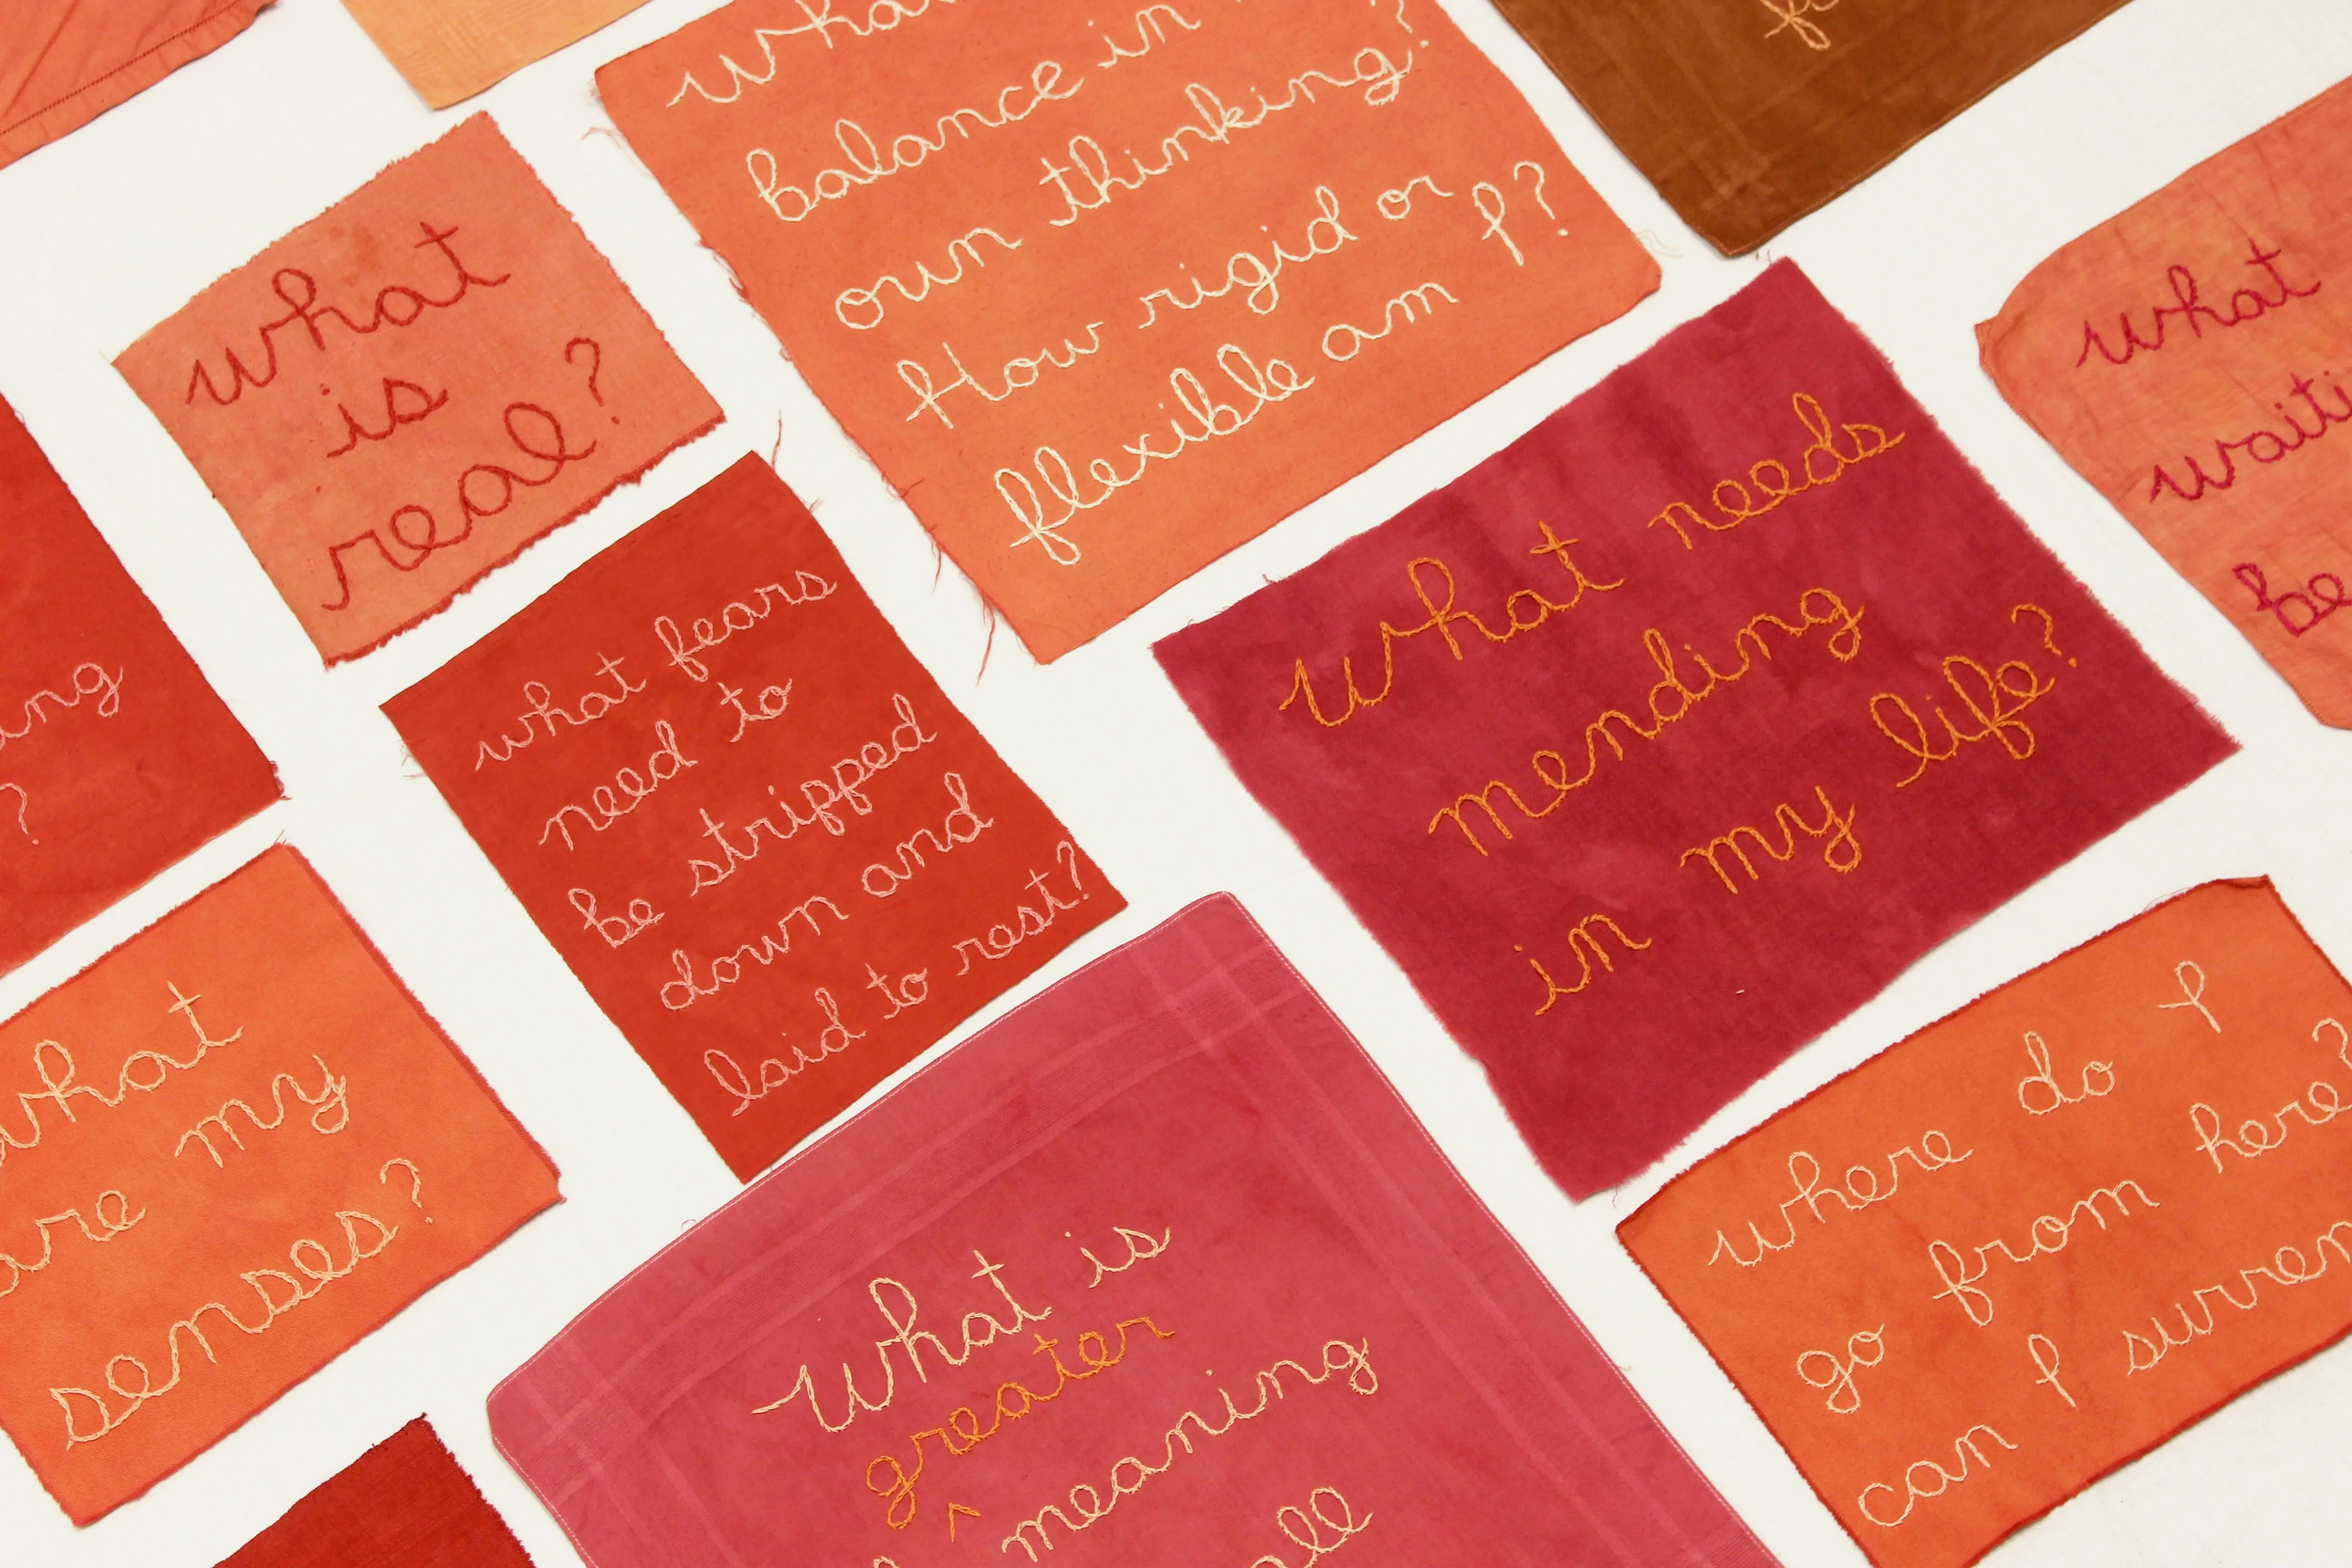 balance in
own thinking?
How rigid or
flexible am I?
what
is
real?
what
be
what fears
need to
be stripped
down and
laid to rest?
What needs
mending
in my life?
what
are my
senses?
What is
greater
^ meaning
where do I
go from here?
can I